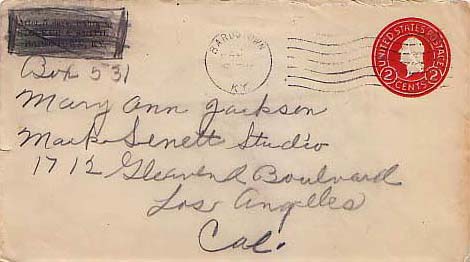 Box 531
Mary Ann Jackson
Mack Senett Studio
1712 Glavend Boulvard
Los Angelles
Cal.
BARDSTOWN
KY.
UNITED STATES POSTAGE
2 CENTS 2